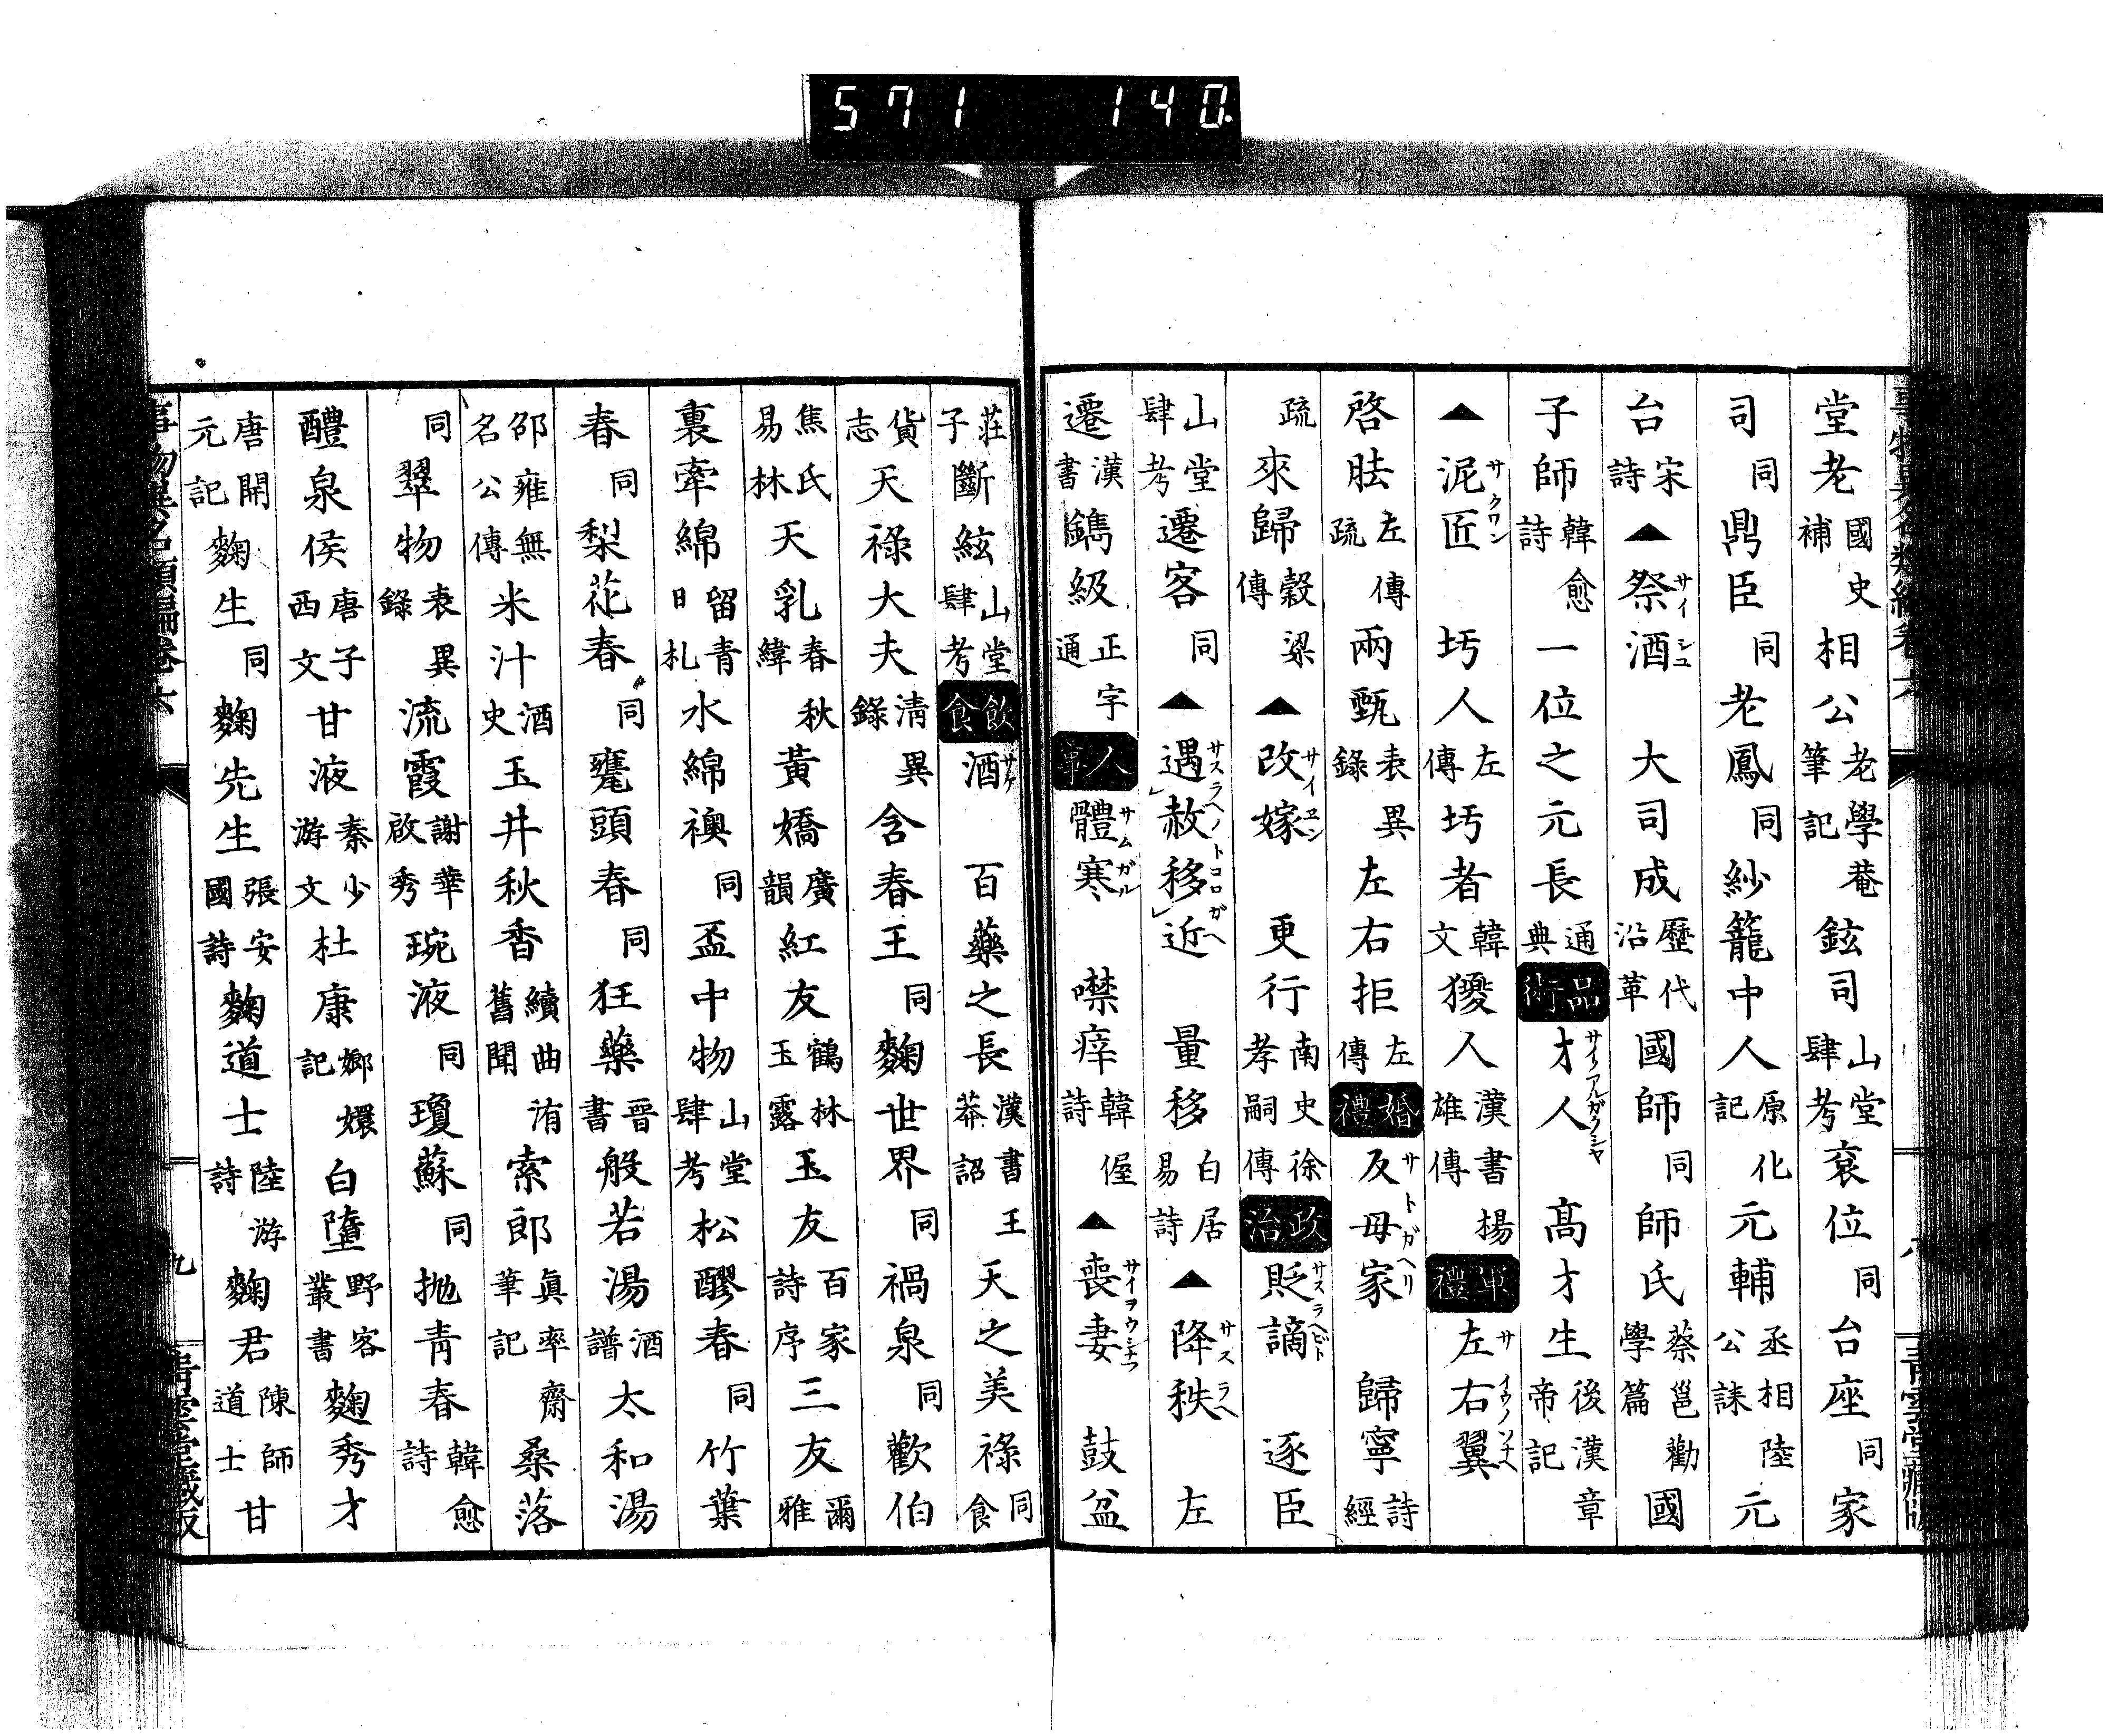 571 140
堂老國史補相公老學菴筆記鉉司山堂肆考袞位同台座同家
司同鼎臣同老鳳同紗籠中人原化記元輔丞相陸公誄元
台宋詩▲祭酒サイシユ大司成歷代沿革國師同師氏蔡邕勸學篇國
子師韓愈詩一位之元長通典品術才人サイノアルガクシヤ高才生後漢章帝記
▲泥匠サクワン圬人左傳圬者韓文獿人漢書楊雄傳軍禮左右翼サイウノソナヘ
啓胠左傳疏兩甄表異錄左右拒左傳婚禮反母家サトガヘリ歸寧詩經
疏來歸穀梁傳▲改嫁サイエン更行南史徐孝嗣傳政治貶謫サスラヘビト逐臣
山堂肆考遷客同▲遇赦移近サスラヘノトコロガヘ量移白居易詩▲降秩サスラヘ左
遷漢書鐫級正字通人事體寒サムガル噤痒韓偓詩▲喪妻サイヲウシナフ鼓盆
莊子斷絃山堂肆考飲食酒サケ百藥之長漢書王莽詔天之美祿同食
貨志天祿大夫清異錄含春王同麴世界同禍泉同歡伯
焦氏易林天乳春秋緯黃嬌廣韻紅友鶴林玉露玉友百家詩序三友爾雅
裏牽綿留青日札水綿襖同盃中物山堂肆考松醪春同竹葉
春同梨花春同甕頭春同狂藥晉書般若湯酒譜太和湯
邵雍無名公傳米汁酒史玉井秋香續曲洧舊聞索郎眞率齋筆記桑落
同翠物表異錄流霞謝華啟秀琬液同瓊蘇同拋青春韓愈詩
醴泉侯唐子西文甘液秦少游文杜康嫏嬛記白墮野客叢書麴秀才
唐開元記麴生同麴先生張安國詩麴道士陸游詩麴君陳師道士甘
九